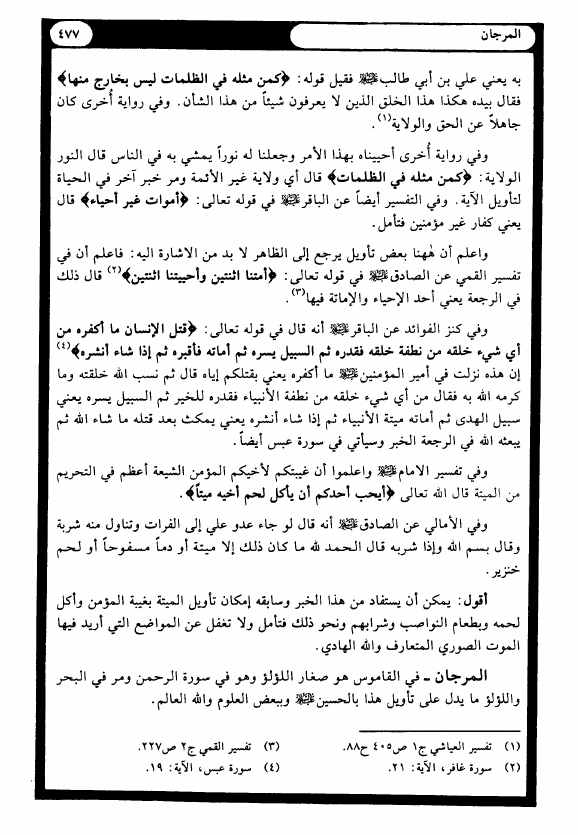 المرجان ٤٧٧
به يعني علي بن أبي طالبﷺ فقيل قوله: ﴿كمن مثله في الظلمات ليس بخارج منها﴾
فقال بيده هكذا هذا الخلق الذين لا يعرفون شيئاً من هذا الشأن. وفي رواية أُخرى كان
جاهلاً عن الحق والولاية(١).
وفي رواية أُخرى أحييناه بهذا الأمر وجعلنا له نوراً يمشي به في الناس قال النور
الولاية: ﴿كمن مثله في الظلمات﴾ قال أي ولاية غير الأئمة ومر خبر آخر في الحياة
لتأويل الآية. وفي التفسير أيضاً عن الباقرﷺ في قوله تعالى: ﴿أموات غير أحياء﴾ قال
يعني كفار غير مؤمنين فتأمل.
واعلم أن هٰهنا بعض تأويل يرجع إلى الظاهر لا بد من الاشارة اليه: فاعلم أن في
تفسير القمي عن الصادقﷺ في قوله تعالى: ﴿أمتنا اثنتين وأحييتنا اثنتين﴾(٢) قال ذلك
في الرجعة يعني أحد الإحياء والإماتة فيها(٣).
وفي كنز الفوائد عن الباقرﷺ أنه قال في قوله تعالى: ﴿قتل الإنسان ما أكفره من
أي شيء خلقه من نطفة خلقه فقدره ثم السبيل يسره ثم أماته فأقبره ثم إذا شاء أنشره﴾(٤)
إن هذه نزلت في أمير المؤمنينﷺ ما أكفره يعني بقتلكم إياه قال ثم نسب الله خلقته وما
كرمه الله به فقال من أي شيء خلقه من نطفة الأنبياء فقدره للخير ثم السبيل يسره يعني
سبيل الهدى ثم أماته ميتة الأنبياء ثم إذا شاء أنشره يعني يمكث بعد قتله ما شاء الله ثم
يبعثه الله في الرجعة الخبر وسيأتي في سورة عبس أيضاً.
وفي تفسير الامامﷺ واعلموا أن غيبتكم لأخيكم المؤمن الشيعة أعظم في التحريم
من الميتة قال الله تعالى ﴿أيحب أحدكم أن يأكل لحم أخيه ميتاً﴾.
وفي الأمالي عن الصادقﷺ أنه قال لو جاء عدو علي إلى الفرات وتناول منه شربة
وقال بسم الله وإذا شربه قال الحمد لله ما كان ذلك إلا ميتة أو دماً مسفوحاً أو لحم
خنزير.
أقول: يمكن أن يستفاد من هذا الخبر وسابقه إمكان تأويل الميتة بغيبة المؤمن وأكل
لحمه وبطعام النواصب وشرابهم ونحو ذلك فتأمل ولا تغفل عن المواضع التي أريد فيها
الموت الصوري المتعارف والله الهادي.
المرجان ـ في القاموس هو صغار اللؤلؤ وهو في سورة الرحمن ومر في البحر
واللؤلؤ ما يدل على تأويل هذا بالحسينﷺ وببعض العلوم والله العالم.
(١) تفسير العياشي ج١ ص٤٠٥ ح٨٨. (٣) تفسير القمي ج٢ ص٢٢٧.
(٢) سورة غافر، الآية: ٢١. (٤) سورة عبس، الآية: ١٩.